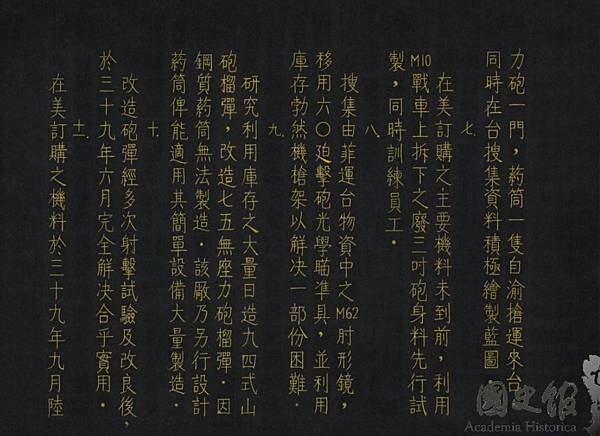 力砲一門，药筒一隻自渝搶運來台
同時在台搜集資料積極繪製藍圖
七、
在美訂購之主要機料未到前，利用
M10戰車上拆下之廢三吋砲身料先行試
製，同時訓練員工．
八、
搜集由菲運台物資中之M62肘形鏡，
移用六〇迫擊砲光學瞄準具，並利用
庫存勃然機槍架以解決一部份困難．
九、
研究利用庫存之大量日造九四式山
砲榴彈，改造七五無座力砲榴彈．因
鋼質药筒無法製造．該厰乃另行設計
药筒俾能適用其簡單設備大量製造．
十、
改造砲彈經多次射擊試驗及改良後，
於三十九年六月完全解決合乎實用．
十一、
在美訂購之機料於三十九年九月陸
國史館
Academia Historica